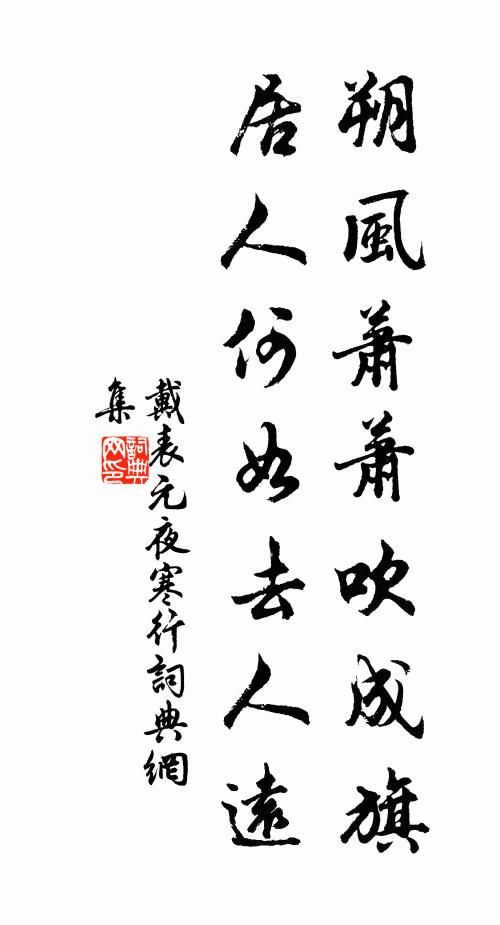 朔風蕭蕭吹成旗
居人何如去人遠
戴表元夜寒行詞典網
集
詞典
网印